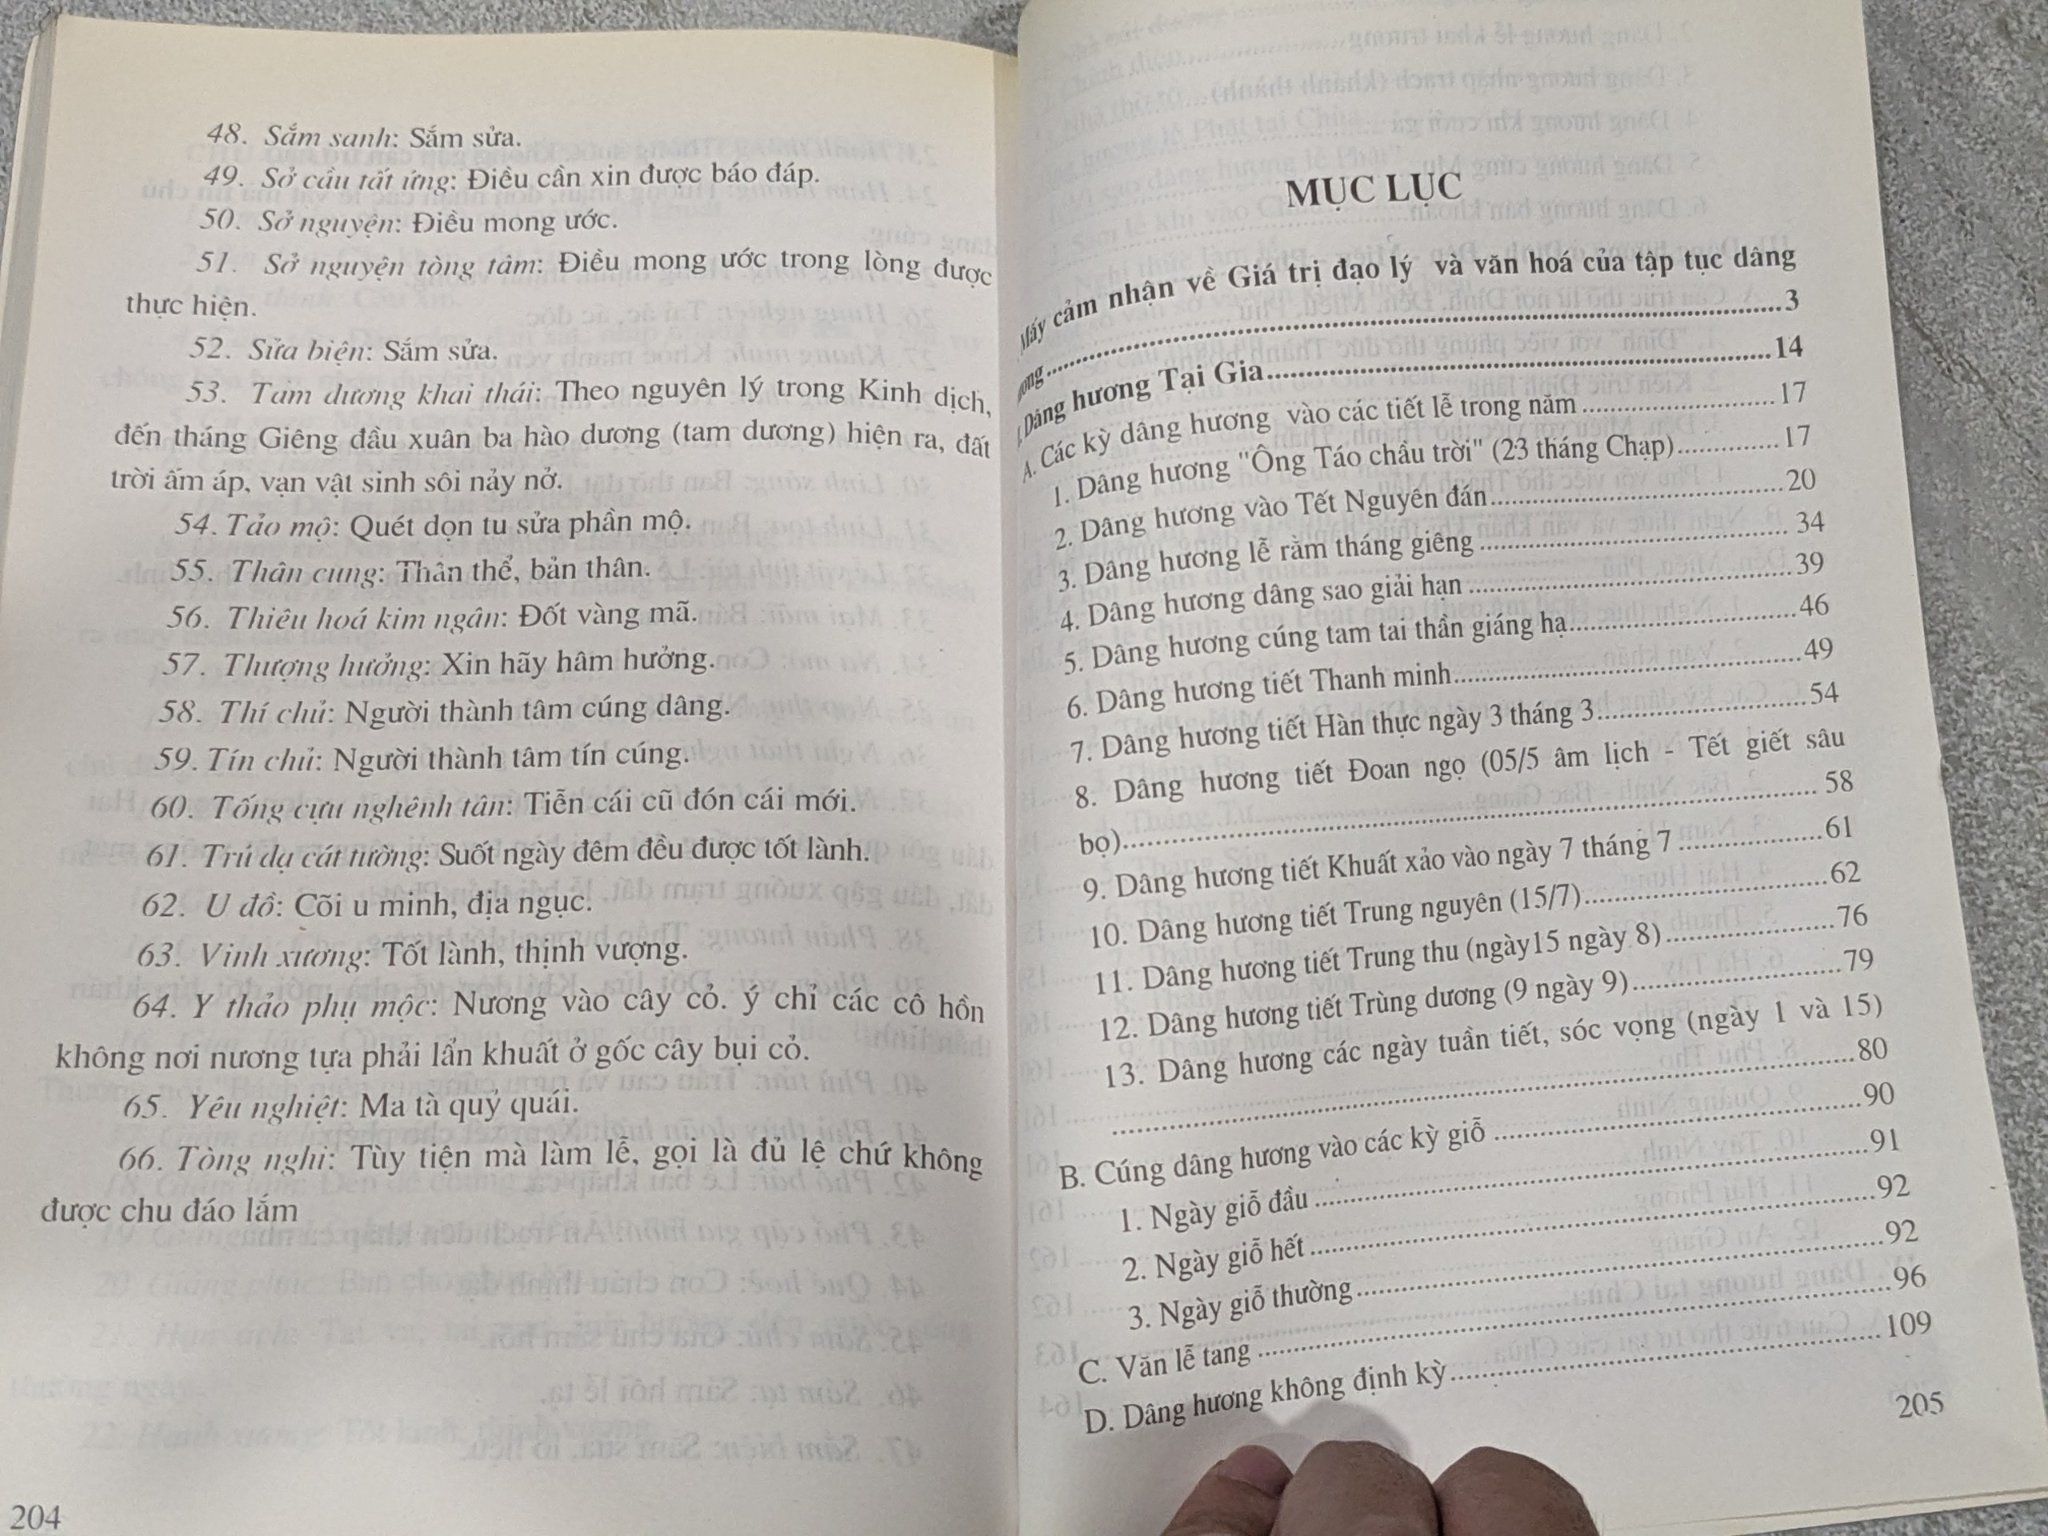 48. Sắm sanh: Sắm sửa.
49. Sở cầu tất ứng: Điều cần xin được báo đáp.
50. Sở nguyện: Điều mong ước.
51. Sở nguyện tòng tâm: Điều mong ước trong lòng được
thực hiện.
52. Sửa biện: Sắm sửa.
53. Tam dương khai thái: Theo nguyên lý trong Kinh dịch,
đến tháng Giêng đầu xuân ba hào dương (tam dương) hiện ra, đất
trời ấm áp, vạn vật sinh sôi nảy nở.
54. Tảo mộ: Quét dọn tu sửa phần mộ.
55. Thân cung: Thân thể, bản thân.
56. Thiêu hoá kim ngân: Đốt vàng mã.
57. Thượng hưởng: Xin hãy hâm hưởng.
58. Thí chủ: Người thành tâm cúng dâng.
59. Tín chủ: Người thành tâm tín cúng.
60. Tống cựu nghênh tân: Tiễn cái cũ đón cái mới.
61. Trú dạ cát tường: Suốt ngày đêm đều được tốt lành.
62. U đồ: Cõi u minh, địa ngục.
63. Vinh xương: Tốt lành, thịnh vượng.
64. Y thảo phụ mộc: Nương vào cây cỏ. ý chỉ các cô hồn
không nơi nương tựa phải lẩn khuất ở gốc cây bụi cỏ.
65. Yêu nghiệt: Ma tà quỷ quái.
66. Tòng nghi: Tùy tiện mà làm lễ, gọi là đủ lệ chứ không
được chu đáo lắm
204
MỤC LỤC
Mấy cảm nhận về Giá trị đạo lý và văn hoá của tập tục dâng
ương..........3
Dâng hương Tại Gia..........14
A. Các kỳ dâng hương vào các tiết lễ trong năm..........17
1. Dâng hương "Ông Táo chầu trời" (23 tháng Chạp)..........17
2. Dâng hương vào Tết Nguyên đán..........20
3. Dâng hương lễ rằm tháng giêng..........34
4. Dâng hương dâng sao giải hạn..........39
5. Dâng hương cúng tam tai thần giáng hạ..........46
6. Dâng hương tiết Thanh minh..........49
7. Dâng hương tiết Hàn thực ngày 3 tháng 3..........54
8. Dâng hương tiết Đoan ngọ (05/5 âm lịch - Tết giết sâu
bọ)..........58
9. Dâng hương tiết Khuất xảo vào ngày 7 tháng 7..........61
10. Dâng hương tiết Trung nguyên (15/7)..........62
11. Dâng hương tiết Trung thu (ngày15 ngày 8)..........76
12. Dâng hương tiết Trùng dương (9 ngày 9)..........79
13. Dâng hương các ngày tuần tiết, sóc vọng (ngày 1 và 15)
..........80
B. Cúng dâng hương vào các kỳ giỗ..........90
1. Ngày giỗ đầu..........91
2. Ngày giỗ hết..........92
3. Ngày giỗ thường..........92
C. Văn lễ tang..........96
D. Dâng hương không định kỳ..........109
205